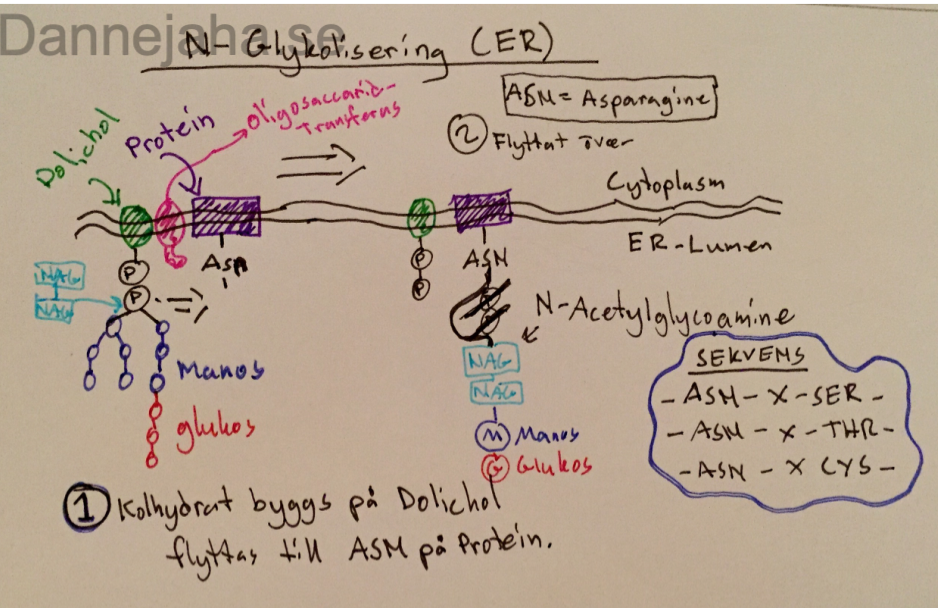 Dannejaha.se
N-Glykolisering (ER)
ASN = Asparagine
Dolichol
Protein
Oligosaccarid-
Transferas
2 Flyttat över
Cytoplasm
ER-Lumen
P
P
ASN
NAG
NAG
Manos
glukos
P
P
ASN
N-Acetylglycoamine
NAG
NAG
M Manos
G Glukos
SEKVENS
- ASN - X - SER -
- ASN - X - THR -
- ASN - X CYS -
1 Kolhydrat byggs på Dolichol
flyttas till ASN på Protein.